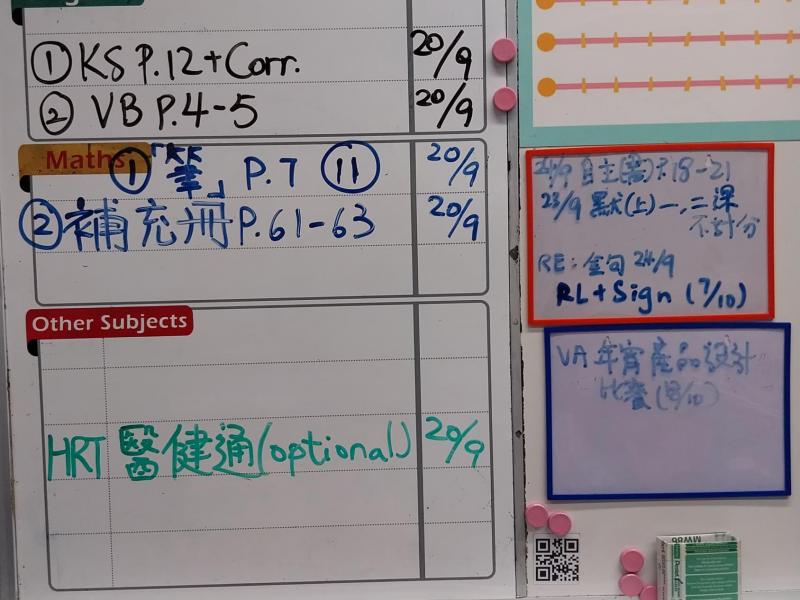 ① KS P.12+Corr. 20/9
② VB P.4-5 20/9
Maths
① 「筆」 P.7 ⑪ 20/9
② 補充冊 P.61-63 20/9
Other Subjects
HRT 醫健通(optional) 20/9
24/9 自主(書) P.18-21
23/9 默(上)一,二課
不計分
RE: 金句 24/9
RL+Sign (7/10)
VA 年宵產品設計
比賽(8/10)
MW86
Pentel